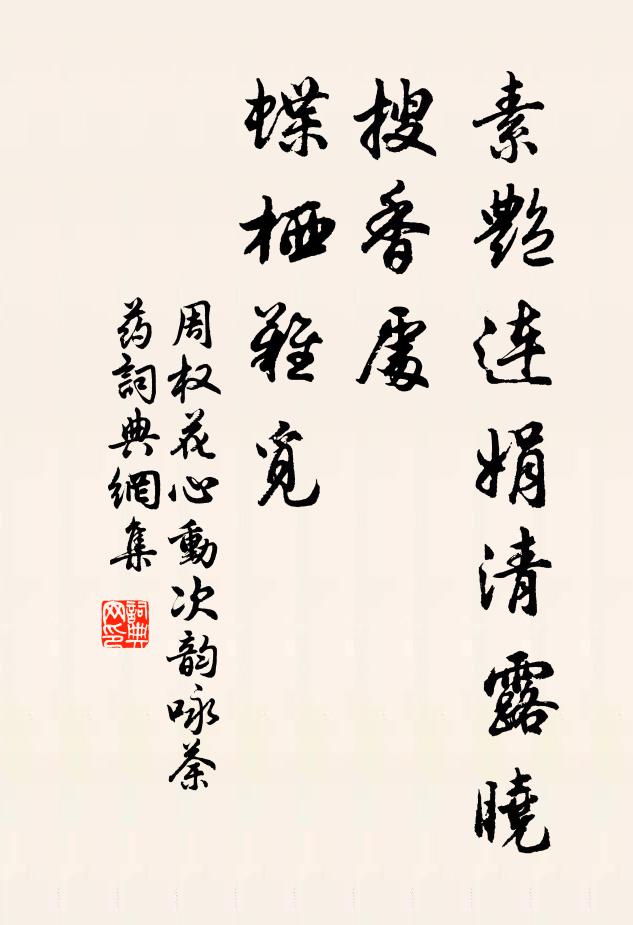 素艶連娟清露曉
搜香處
蝶栖難覓
周权花心動次韵咏荼
药詞典網集
詞典
网印